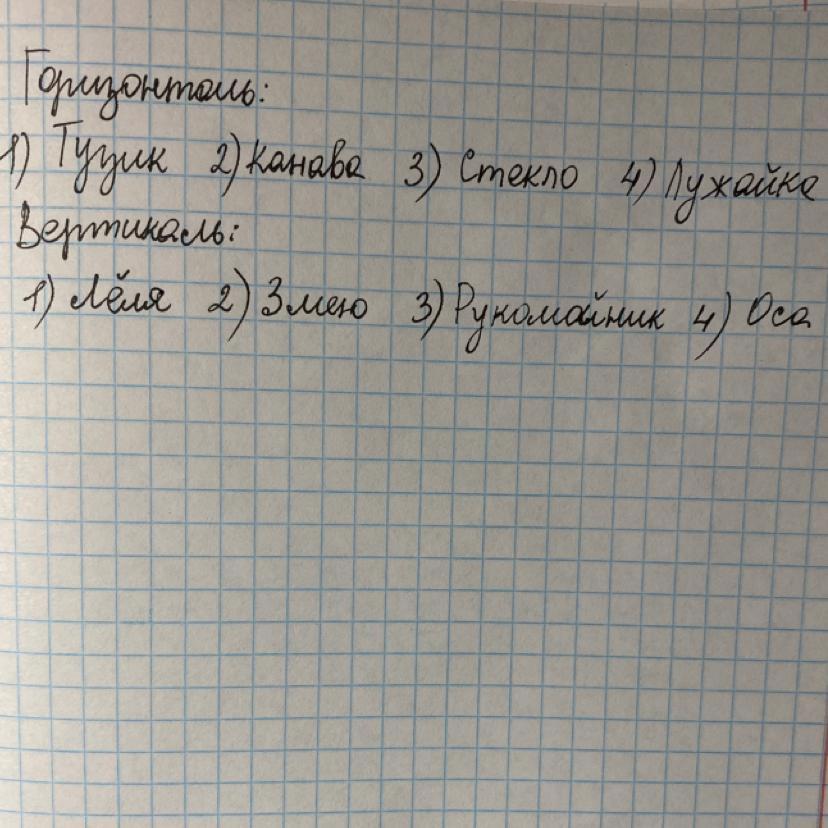 Горизонталь:
1) Тузик 2) Канава 3) Стекло 4) Лужайка
Вертикаль:
1) Лёля 2) Змею 3) Рукомойник 4) Оса